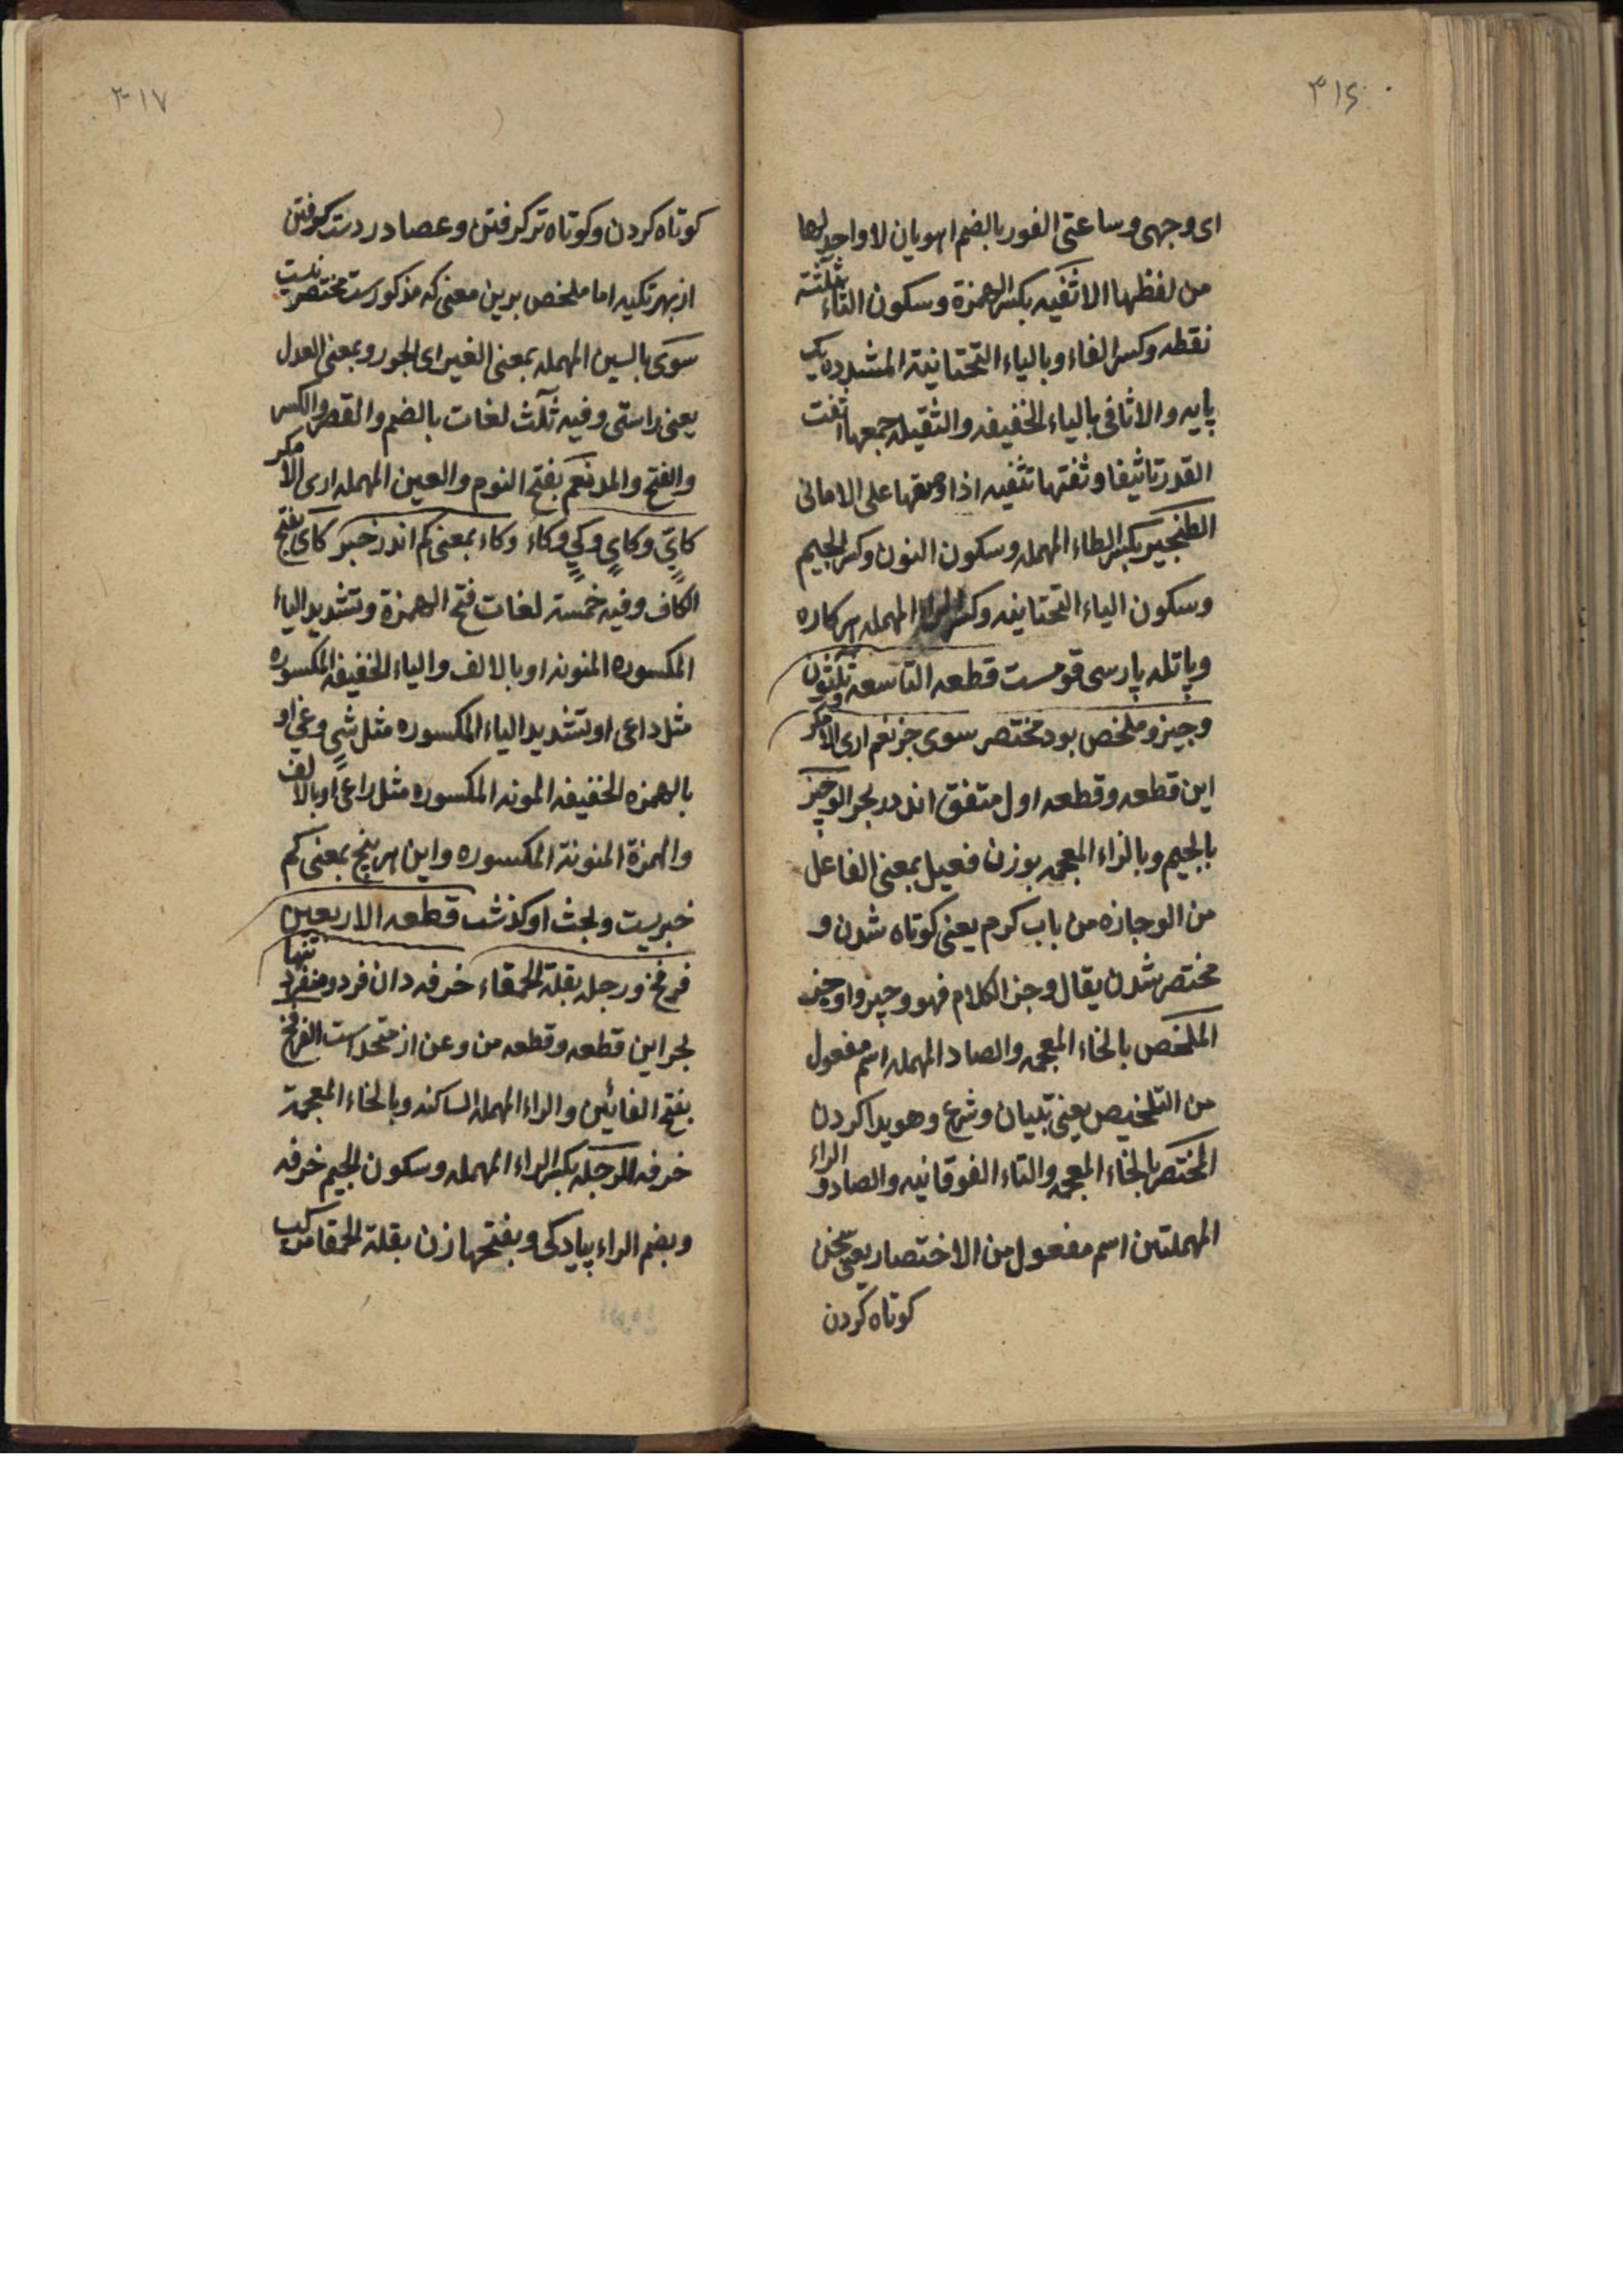 ۳۱۶
ای وجهی وساعتی الفور بالضم اهویان لا واحد لها
من لفظها الاثفیه بکسر الهمزة وسکون الثاء بثلثة
نقطه وکسر الفاء وبالیاء التحتانیة المشدده یک
پایه والاثافی بالیاء الخفیفه والثقیله جمعها اثفت
القدر تاثیفا وثفتها تثفیه اذا وضعها علی الامانی
الطنجیر بکسر الطاء المهمله وسکون النون وکسر الجیم
وسکون الیاء التحتانیه المهمله اس کاره
وپاتله پارسی قومست قطعه التاسعه ثلثون
وجیز و ملخص بود مختصر سوی جز نعم اری الا مکر
این قطعه وقطعه اول متفق اند در بحر الوجیز
بالجیم وبالزاء المعجمه بوزن فعیل بمعنی الفاعل
من الوجازه من باب کرم یعنی کوتاه شدن و
مختصر شدن یقال وجز الکلام فهو وجیز واوجیز
الملخص بالخاء المعجمه والصاد المهمله اسم مفعول
من التلخیص یعنی تبیان وشرع وهویدا کردن
المختصر بالخاء المعجمه والتاء الفوقانیه والصاد و الراء
المهملتین اسم مفعول من الاختصار یعنی سخن
کوتاه کردن
۳۱۷
کوتاه کردن وکوتاه تر کرفتن وعصا در دست کرفتن
از بهر تکیه اما ملخص برین معنی که مذکورست مختصر نیست
سوی بالسین المهمله بمعنی الغیر ای الجور وبمعنی العدل
یعنی راستی وفیه ثلث لغات بالضم والقصر والکسر
والفتح والمد نعم بفتح النوم والعین المهمله اری الا مکر
کایّ وکای وکی وکاء وکاء بمعنی کم اندر خبر کای بفتح
الکاف وفیه خمسة لغات فتح الهمزة وتشدید الیاء
المکسوره المنونه او بالالف والیاء الخفیفه المکسوره
مثل داعی او بتشدید الیاء المکسوره مثل شیٍ وغیٍ او
بالهمزه الخفیفه المونه المکسوره مثل راعی او بالالف
والهمزة المنونة المکسوره واین هر پنج بمعنی کم
خبریست وبحث او کذشت قطعه الاربعین
فرفخ ورجله بقلة الحمقاء خرفه دان فرد ومنفرد تنها
بحر این قطعه وقطعه من وعن از متحد است الفرفخ
بفتح الفائین والراء المهمله الساکنه وبالخاء المعجمة
خرفه الرجله بکسر الراء المهمله وسکون الجیم خرفه
وبضم الراء پیادکی وبفتحها زن بقلة الحمقا مرکب